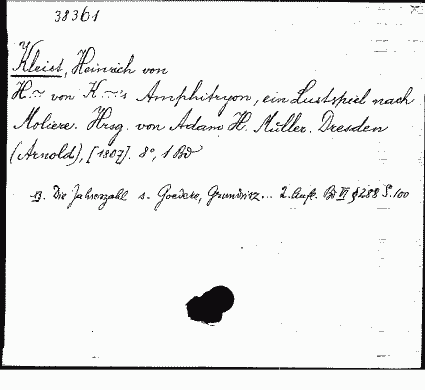 38361
Kleist, Heinrich von
H~ von K~'s Amphitryon, ein Lustspiel nach
Moliere. Hrsg. von Adam H. Müller. Dresden
(Arnold), [1807]. 8°, 1 Bd
Die Jahreszahl s. Goedeke, Grundriz... 2. Aufl. Bd VI § 288 S. 100